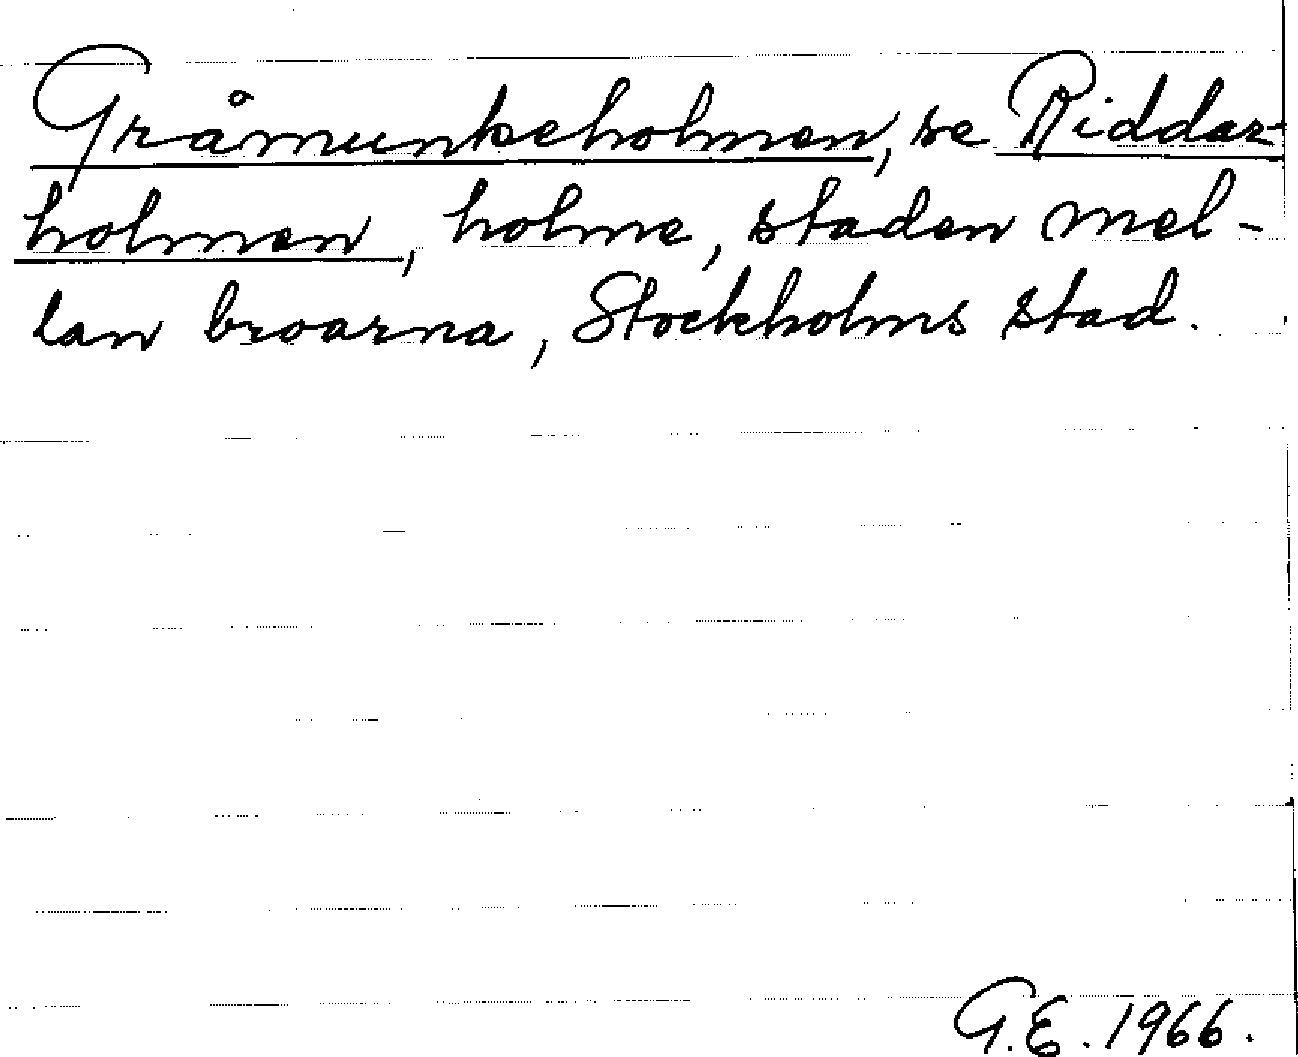 Gråmunkeholmen, se Riddar-
holmen, holme, staden mel-
lan broarna, Stockholms stad.
G.E. 1966.